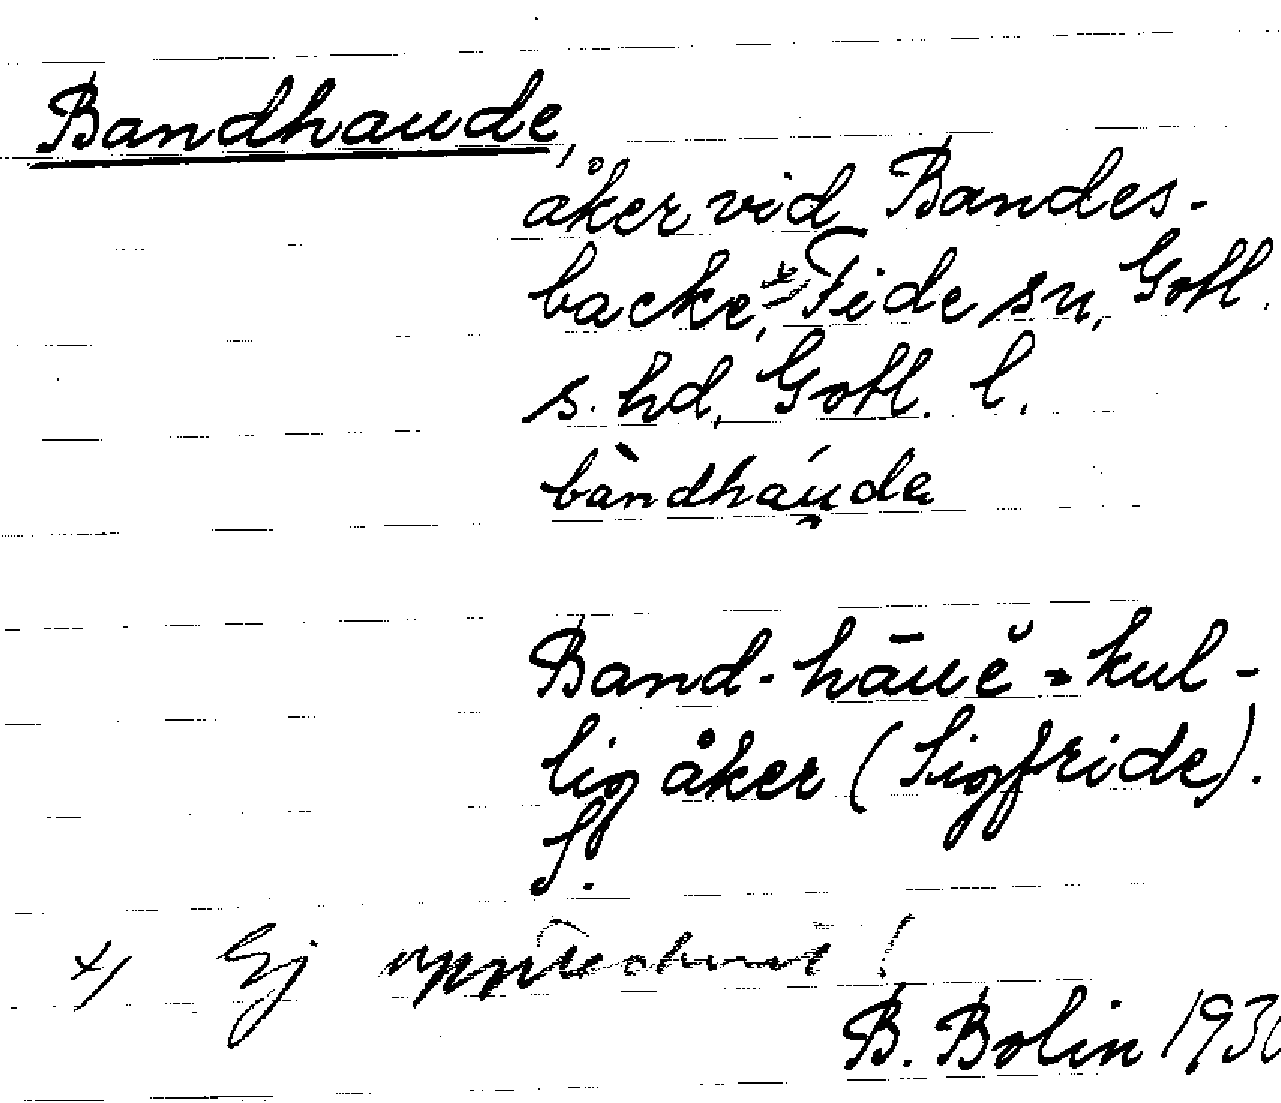 Bandhaude,
åker vid Bandes-
backe,x) Fide sn, Gotl.
s. hd, Gotl. l.
bàndháu̯de
Band-hāuĕ = kul-
lig åker (Sigfride).
S.
x) Ej !
B. Bolin 193